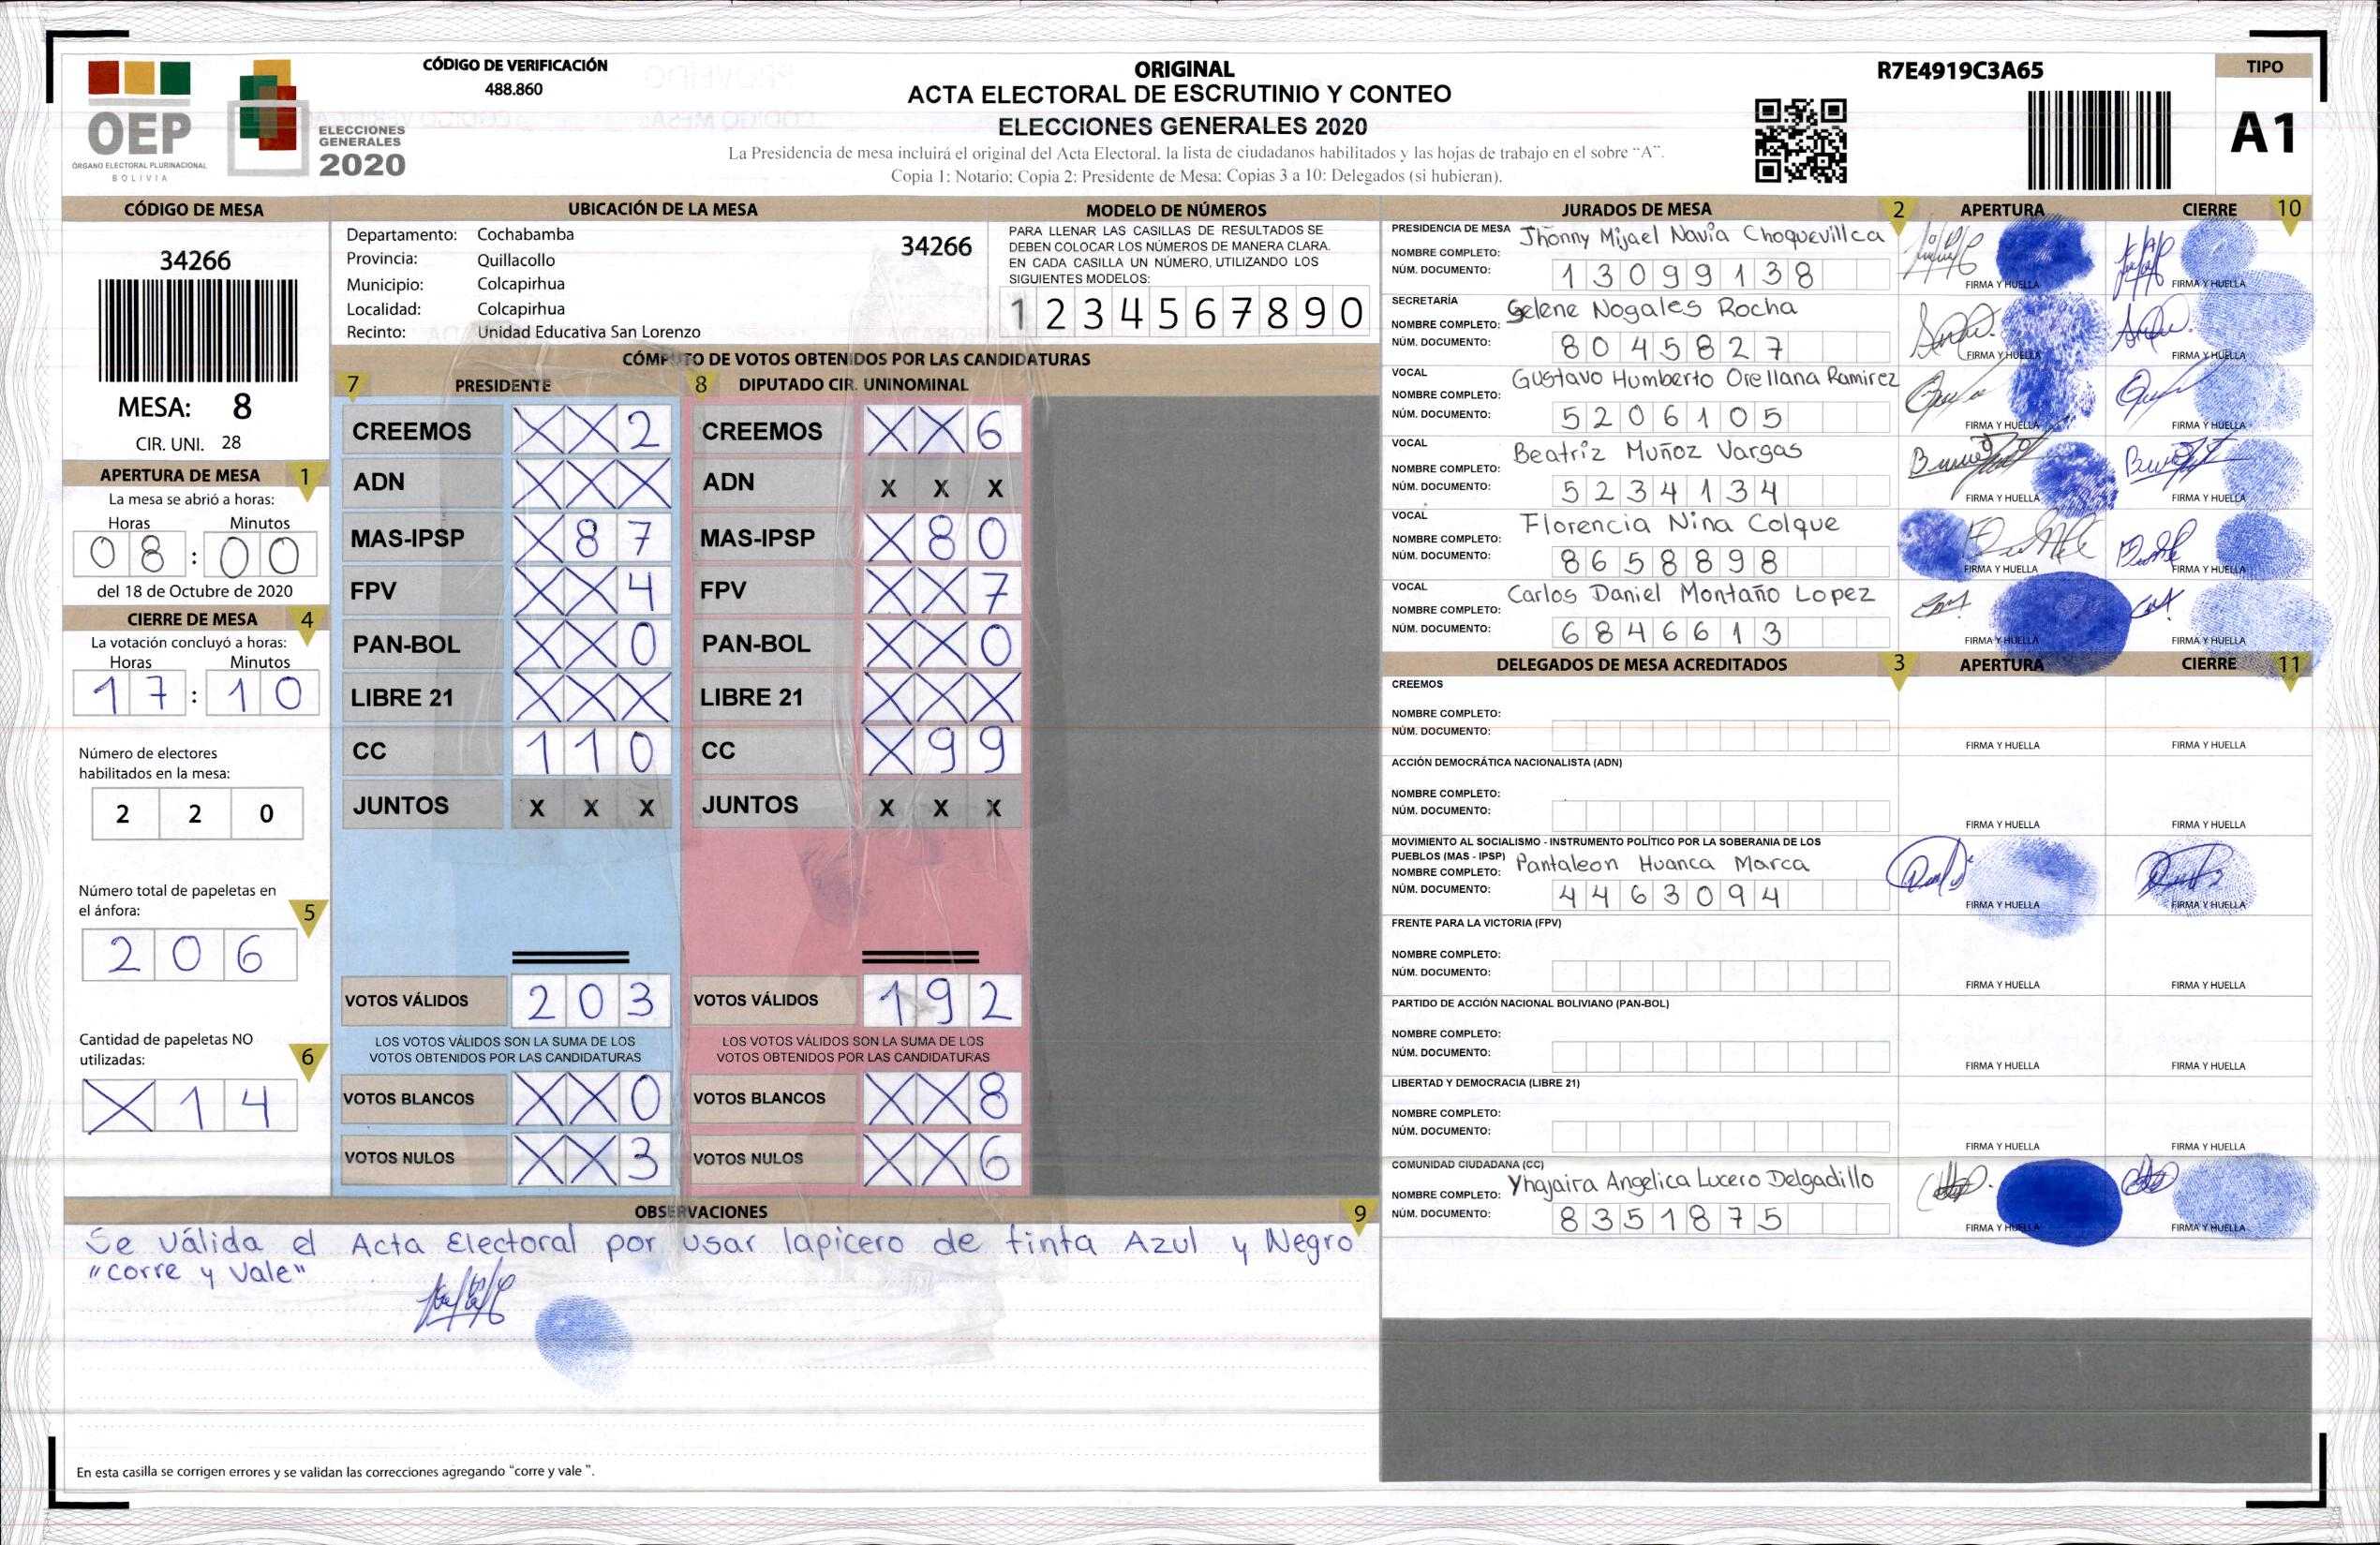 CÓDIGO DE VERIFICACIÓN
488.860
OEP
ÓRGANO ELECTORAL PLURINACIONAL
BOLIVIA
ELECCIONES
GENERALES
2020
ORIGINAL
ACTA ELECTORAL DE ESCRUTINIO Y CONTEO
ELECCIONES GENERALES 2020
La Presidencia de mesa incluirá el original del Acta Electoral, la lista de ciudadanos habilitados y las hojas de trabajo en el sobre “A”.
Copia 1: Notario; Copia 2: Presidente de Mesa; Copias 3 a 10: Delegados (si hubieran).
R7E4919C3A65
TIPO
A1
CÓDIGO DE MESA
34266
MESA: 8
CIR. UNI. 28
APERTURA DE MESA 1
La mesa se abrió a horas:
Horas Minutos
08 : 00
del 18 de Octubre de 2020
CIERRE DE MESA 4
La votación concluyó a horas:
Horas Minutos
17 : 10
Número de electores
habilitados en la mesa:
2 2 0
Número total de papeletas en
el ánfora: 5
2 0 6
Cantidad de papeletas NO
utilizadas: 6
X 1 4
UBICACIÓN DE LA MESA
Departamento: Cochabamba 34266
Provincia: Quillacollo
Municipio: Colcapirhua
Localidad: Colcapirhua
Recinto: Unidad Educativa San Lorenzo
MODELO DE NÚMEROS
PARA LLENAR LAS CASILLAS DE RESULTADOS SE
DEBEN COLOCAR LOS NÚMEROS DE MANERA CLARA.
EN CADA CASILLA UN NÚMERO, UTILIZANDO LOS
SIGUIENTES MODELOS:
1 2 3 4 5 6 7 8 9 0
CÓMPUTO DE VOTOS OBTENIDOS POR LAS CANDIDATURAS
7 PRESIDENTE 8 DIPUTADO CIR. UNINOMINAL
CREEMOS X X 2 CREEMOS X X 6
ADN X X X ADN X X X
MAS-IPSP X 8 7 MAS-IPSP X 8 0
FPV X X 4 FPV X X 7
PAN-BOL X X 0 PAN-BOL X X 0
LIBRE 21 X X X LIBRE 21 X X X
CC 1 1 0 CC X 9 9
JUNTOS X X X JUNTOS X X X
VOTOS VÁLIDOS 2 0 3 VOTOS VÁLIDOS 1 9 2
LOS VOTOS VÁLIDOS SON LA SUMA DE LOS LOS VOTOS VÁLIDOS SON LA SUMA DE LOS
VOTOS OBTENIDOS POR LAS CANDIDATURAS VOTOS OBTENIDOS POR LAS CANDIDATURAS
VOTOS BLANCOS X X 0 VOTOS BLANCOS X X 8
VOTOS NULOS X X 3 VOTOS NULOS X X 6
OBSERVACIONES 9
Se válida el Acta Electoral por usar lapicero de tinta Azul y Negro
"Corre y Vale"
En esta casilla se corrigen errores y se validan las correcciones agregando “corre y vale ”.
JURADOS DE MESA 2 APERTURA CIERRE 10
PRESIDENCIA DE MESA Jhonny Mijael Navia Choquevillca
NOMBRE COMPLETO:
NÚM. DOCUMENTO: 13099138 FIRMA Y HUELLA FIRMA Y HUELLA
SECRETARÍA
NOMBRE COMPLETO: Selene Nogales Rocha
NÚM. DOCUMENTO: 8045827 FIRMA Y HUELLA FIRMA Y HUELLA
VOCAL Gustavo Humberto Orellana Ramirez
NOMBRE COMPLETO:
NÚM. DOCUMENTO: 5206105 FIRMA Y HUELLA FIRMA Y HUELLA
VOCAL Beatriz Muñoz Vargas
NOMBRE COMPLETO:
NÚM. DOCUMENTO: 5234134 FIRMA Y HUELLA FIRMA Y HUELLA
VOCAL Florencia Nina Colque
NOMBRE COMPLETO:
NÚM. DOCUMENTO: 8658898 FIRMA Y HUELLA FIRMA Y HUELLA
VOCAL Carlos Daniel Montaño Lopez
NOMBRE COMPLETO:
NÚM. DOCUMENTO: 6846613 FIRMA Y HUELLA FIRMA Y HUELLA
DELEGADOS DE MESA ACREDITADOS 3 APERTURA CIERRE 11
CREEMOS
NOMBRE COMPLETO:
NÚM. DOCUMENTO: FIRMA Y HUELLA FIRMA Y HUELLA
ACCIÓN DEMOCRÁTICA NACIONALISTA (ADN)
NOMBRE COMPLETO:
NÚM. DOCUMENTO: FIRMA Y HUELLA FIRMA Y HUELLA
MOVIMIENTO AL SOCIALISMO - INSTRUMENTO POLÍTICO POR LA SOBERANIA DE LOS
PUEBLOS (MAS - IPSP) Pantaleon Huanca Marca
NOMBRE COMPLETO:
NÚM. DOCUMENTO: 4463094 FIRMA Y HUELLA FIRMA Y HUELLA
FRENTE PARA LA VICTORIA (FPV)
NOMBRE COMPLETO:
NÚM. DOCUMENTO: FIRMA Y HUELLA FIRMA Y HUELLA
PARTIDO DE ACCIÓN NACIONAL BOLIVIANO (PAN-BOL)
NOMBRE COMPLETO:
NÚM. DOCUMENTO: FIRMA Y HUELLA FIRMA Y HUELLA
LIBERTAD Y DEMOCRACIA (LIBRE 21)
NOMBRE COMPLETO:
NÚM. DOCUMENTO: FIRMA Y HUELLA FIRMA Y HUELLA
COMUNIDAD CIUDADANA (CC)
NOMBRE COMPLETO: Yhajaira Angelica Lucero Delgadillo
NÚM. DOCUMENTO: 8351875 FIRMA Y HUELLA FIRMA Y HUELLA